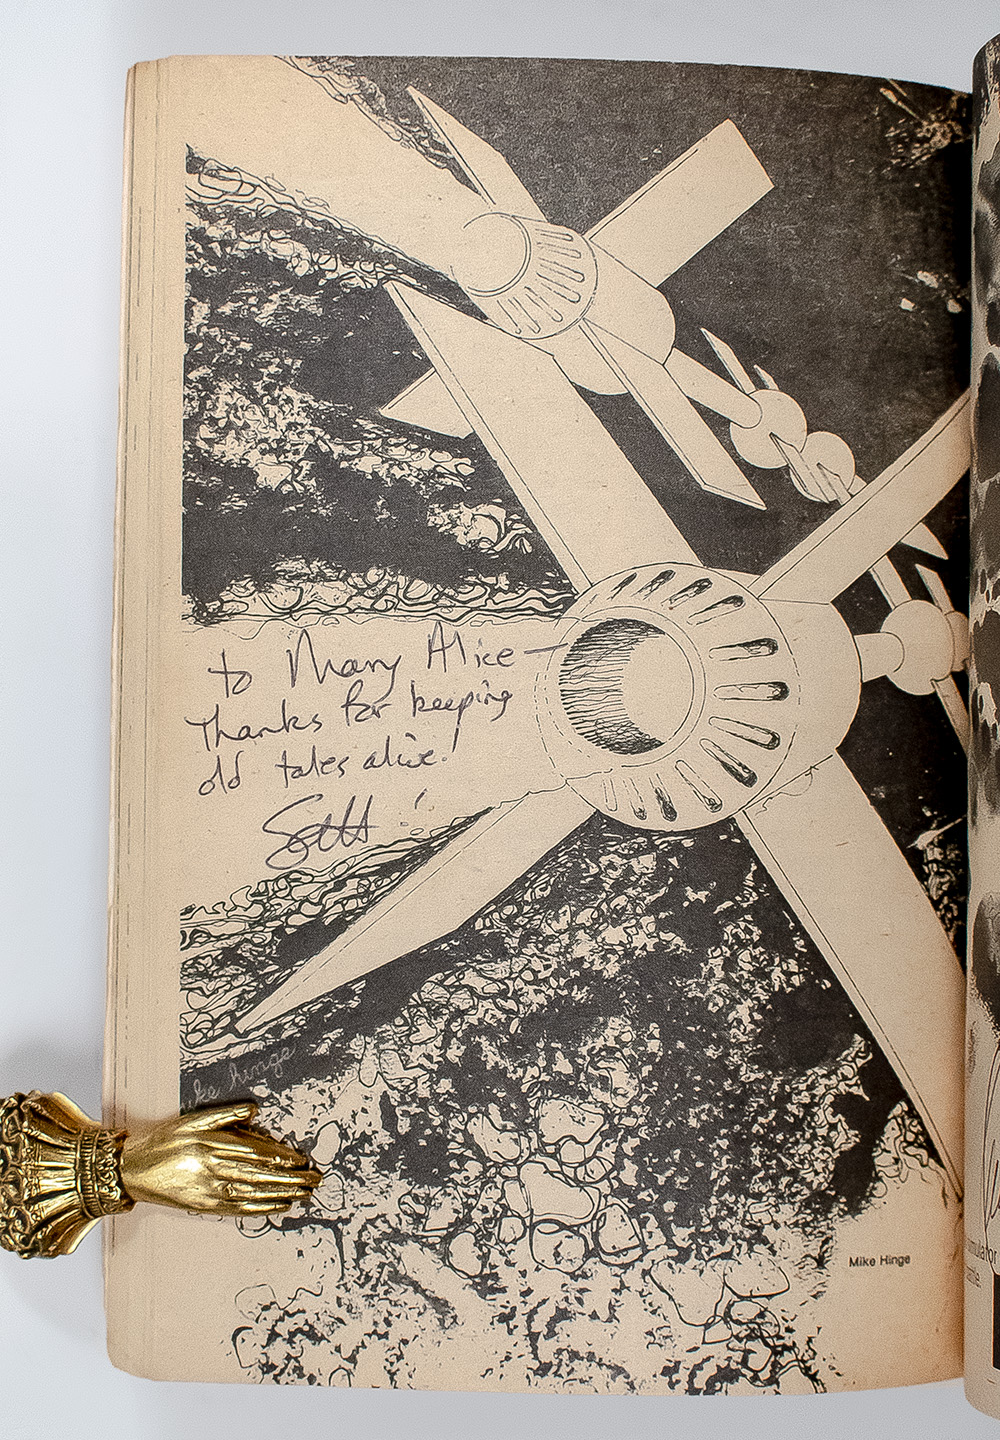 to Mary Alice —
Thanks for keeping
old tales alive!
Scott!
mike hinge
Mike Hinge